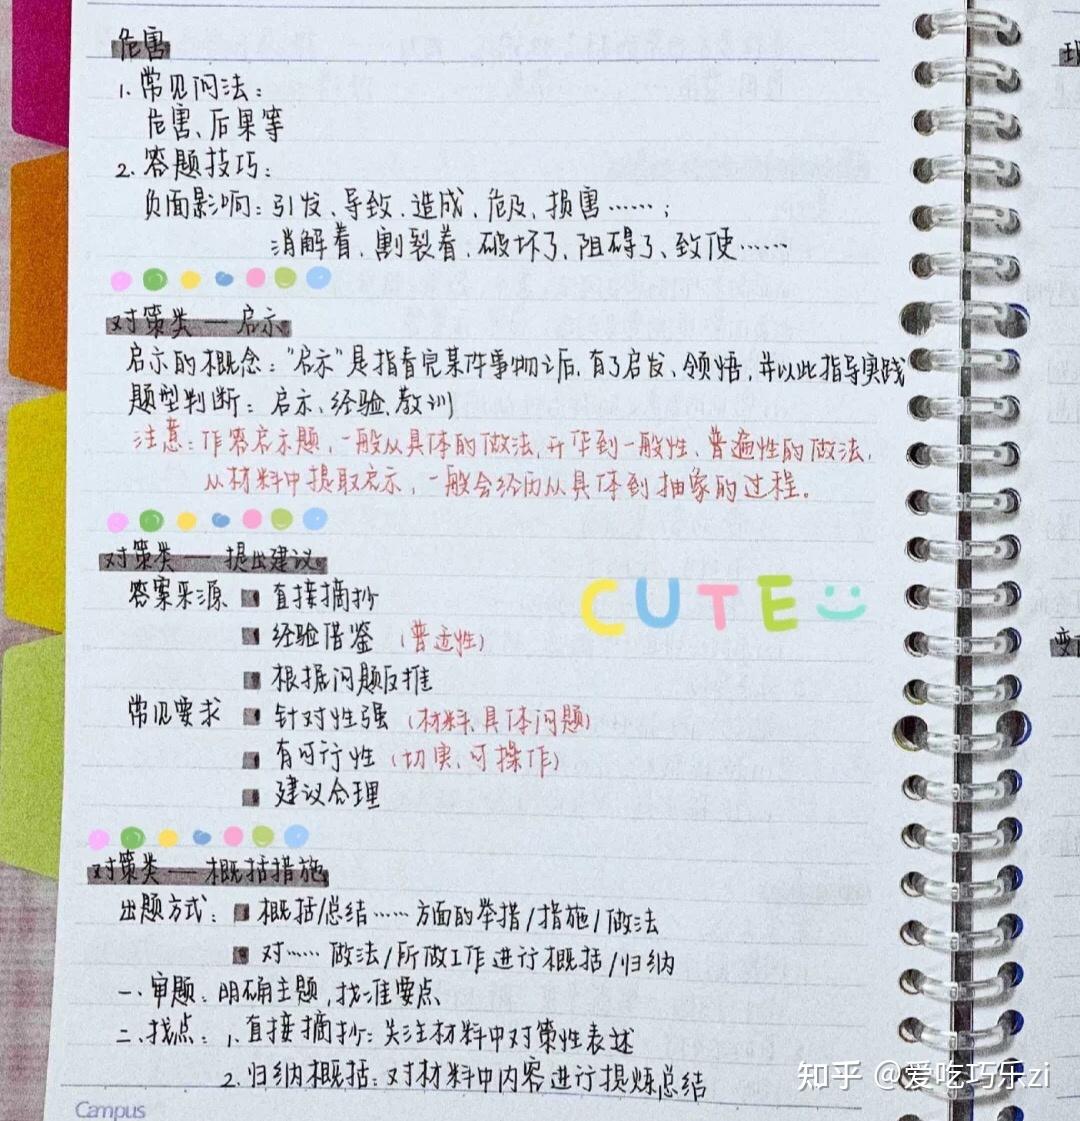 危害
1. 常见问法:
危害、后果等
2. 答题技巧:
负面影响:引发、导致、造成、危及、损害……;
消解着、割裂着、破坏了、阻碍了、致使……
对策类—启示
启示的概念:"启示"是指看完某件事物之后,有了启发、领悟,并以此指导实践
题型判断:启示、经验、教训
注意:作答启示题,一般从具体的做法,升华到一般性、普遍性的做法,
从材料中提取启示,一般会经历从具体到抽象的过程。
对策类—提出建议
答案来源 ■ 直接摘抄
■ 经验借鉴(普适性)
■ 根据问题反推
常见要求 ■ 针对性强(材料、具体问题)
■ 有可行性(切实、可操作)
■ 建议合理
CUTE
对策类—概括措施
出题方式:■ 概括/总结……方面的举措/措施/做法
■ 对……做法/所做工作进行概括/归纳
一、审题:明确主题,找准要点
二、找点:1、直接摘抄:关注材料中对策性表述
2、归纳概括:对材料中内容进行提炼总结
Campus
知乎 @爱吃巧乐zi